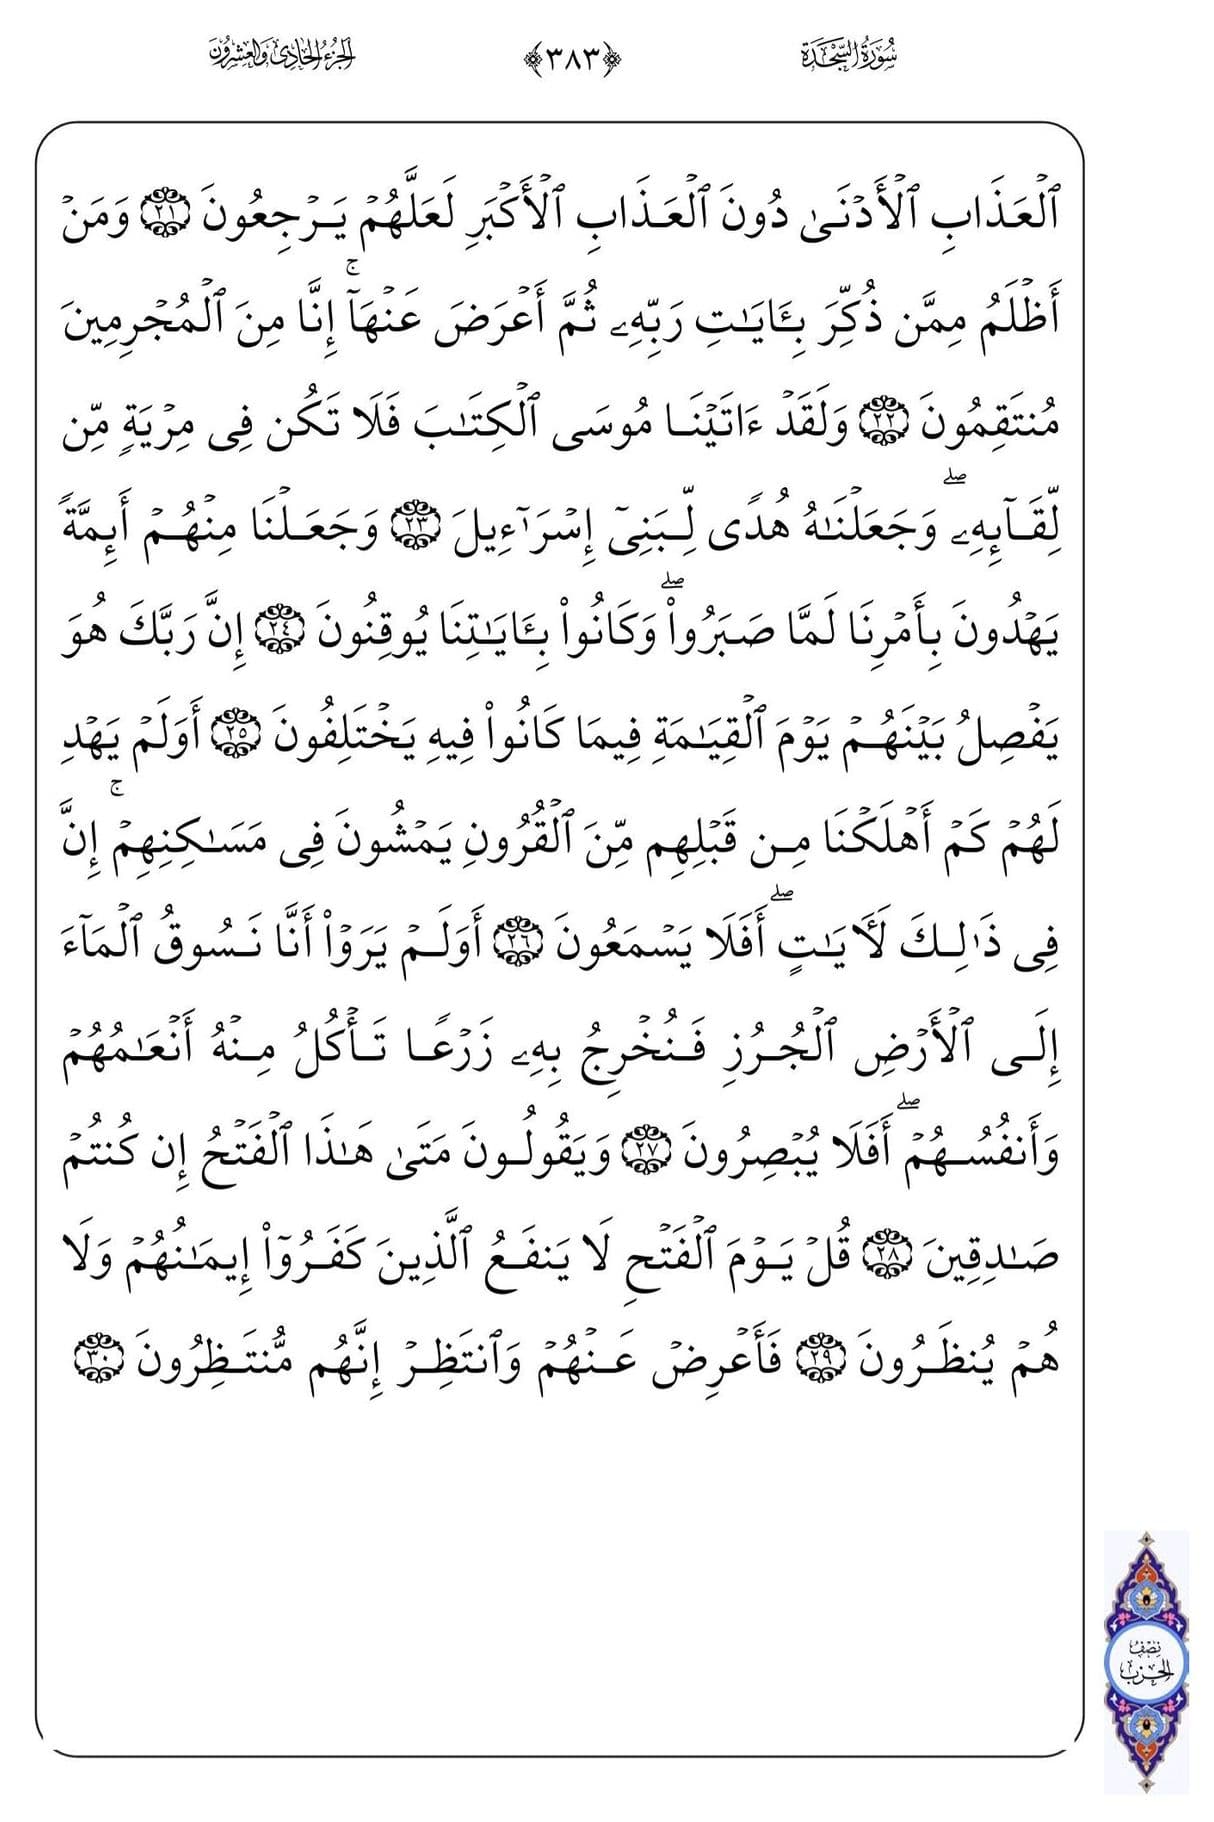 سُورَةُ السَّجْدَةِ
﴿٣٨٣﴾
الجُزْءُ الحَادِي وَالعِشْرُونَ
ٱلْعَذَابِ ٱلْأَدْنَىٰ دُونَ ٱلْعَذَابِ ٱلْأَكْبَرِ لَعَلَّهُمْ يَرْجِعُونَ ٢١ وَمَنْ
أَظْلَمُ مِمَّن ذُكِّرَ بِـَٔايَـٰتِ رَبِّهِۦ ثُمَّ أَعْرَضَ عَنْهَآ ۚ إِنَّا مِنَ ٱلْمُجْرِمِينَ
مُنتَقِمُونَ ٢٢ وَلَقَدْ ءَاتَيْنَا مُوسَى ٱلْكِتَـٰبَ فَلَا تَكُن فِى مِرْيَةٍ مِّن
لِّقَآئِهِۦ ۖ وَجَعَلْنَـٰهُ هُدًى لِّبَنِىٓ إِسْرَٰٓءِيلَ ٢٣ وَجَعَلْنَا مِنْهُمْ أَئِمَّةً
يَهْدُونَ بِأَمْرِنَا لَمَّا صَبَرُوا۟ ۖ وَكَانُوا۟ بِـَٔايَـٰتِنَا يُوقِنُونَ ٢٤ إِنَّ رَبَّكَ هُوَ
يَفْصِلُ بَيْنَهُمْ يَوْمَ ٱلْقِيَـٰمَةِ فِيمَا كَانُوا۟ فِيهِ يَخْتَلِفُونَ ٢٥ أَوَلَمْ يَهْدِ
لَهُمْ كَمْ أَهْلَكْنَا مِن قَبْلِهِم مِّنَ ٱلْقُرُونِ يَمْشُونَ فِى مَسَـٰكِنِهِمْ ۚ إِنَّ
فِى ذَٰلِكَ لَـَٔايَـٰتٍ ۖ أَفَلَا يَسْمَعُونَ ٢٦ أَوَلَمْ يَرَوْا۟ أَنَّا نَسُوقُ ٱلْمَآءَ
إِلَى ٱلْأَرْضِ ٱلْجُرُزِ فَنُخْرِجُ بِهِۦ زَرْعًا تَأْكُلُ مِنْهُ أَنْعَـٰمُهُمْ
وَأَنفُسُهُمْ ۖ أَفَلَا يُبْصِرُونَ ٢٧ وَيَقُولُونَ مَتَىٰ هَـٰذَا ٱلْفَتْحُ إِن كُنتُمْ
صَـٰدِقِينَ ٢٨ قُلْ يَوْمَ ٱلْفَتْحِ لَا يَنفَعُ ٱلَّذِينَ كَفَرُوٓا۟ إِيمَـٰنُهُمْ وَلَا
هُمْ يُنظَرُونَ ٢٩ فَأَعْرِضْ عَنْهُمْ وَٱنتَظِرْ إِنَّهُم مُّنتَظِرُونَ ٣٠
نِصْفُ
الحِزْبِ